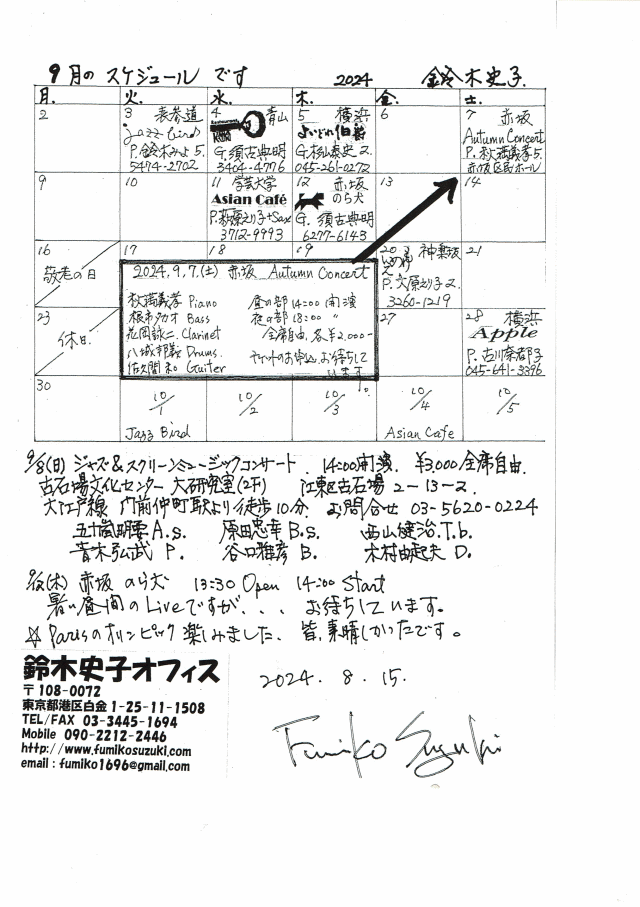 9月の スケジュール です 2024 鈴木史子
月. 火. 水. 木. 金. 土.
2
3 表参道
Jazz Bird
P. 鈴木みよ子
5474-2702
4 青山
G. 須古典明
3404-4776
5 横浜
よいどれ伯爵
G. 杉山泰史
045-261-0272
6
7 赤坂
Autumn Concert
P. 秋満義孝5
赤坂区民ホール
9
10
11 学芸大学
Asian Café
P. 萩原えり子+Sax
3712-9993
12 赤坂
のら犬
G. 須古典明
6277-6143
13
14
16
敬老の日
17
18
19
20 神楽坂
P. 大原えり子
3260-1219
21
2024,9,7,(土) 赤坂 Autumn Concert
秋満義孝 Piano 昼の部 14:00 開演
根市タカオ Bass 夜の部 18:00 〃
花岡詠二 Clarinet 全席自由、各¥2,000-
八城邦義 Drums. チケットのお申込、お待ちして
佐久間和 Guiter います。
23
休日
27
28 横浜
Apple
P. 古川奈都子
045-641-3396
30
10/1
Jazz Bird
10/2
10/3
10/4
Asian Cafe
10/5
9/8(日) ジャズ&スクリーンミュージックコンサート 14:00開演. ¥3,000全席自由.
古石場文化センター 大研究室(2F) 江東区古石場 2-13-2.
大江戸線 門前仲町駅より徒歩10分. お問合せ 03-5620-0224
五十嵐明要 A.s. 原田忠幸 B.s. 西山健治 T.b.
青木弘武 P. 谷口雅彦 B. 木村由起夫 D.
9/12(木) 赤坂 のら犬 13:30 Open 14:00 Start
暑い昼間のLiveですが、、、 お待ちしています。
☆ Parisのオリンピック 楽しみました、皆、素晴しかったです。
鈴木史子オフィス
〒108-0072
東京都港区白金 1-25-11-1508
TEL/FAX 03-3445-1694
Mobile 090-2212-2446
http://www.fumikosuzuki.com
email : fumiko1696@gmail.com
2024. 8. 15.
Fumiko Suzuki